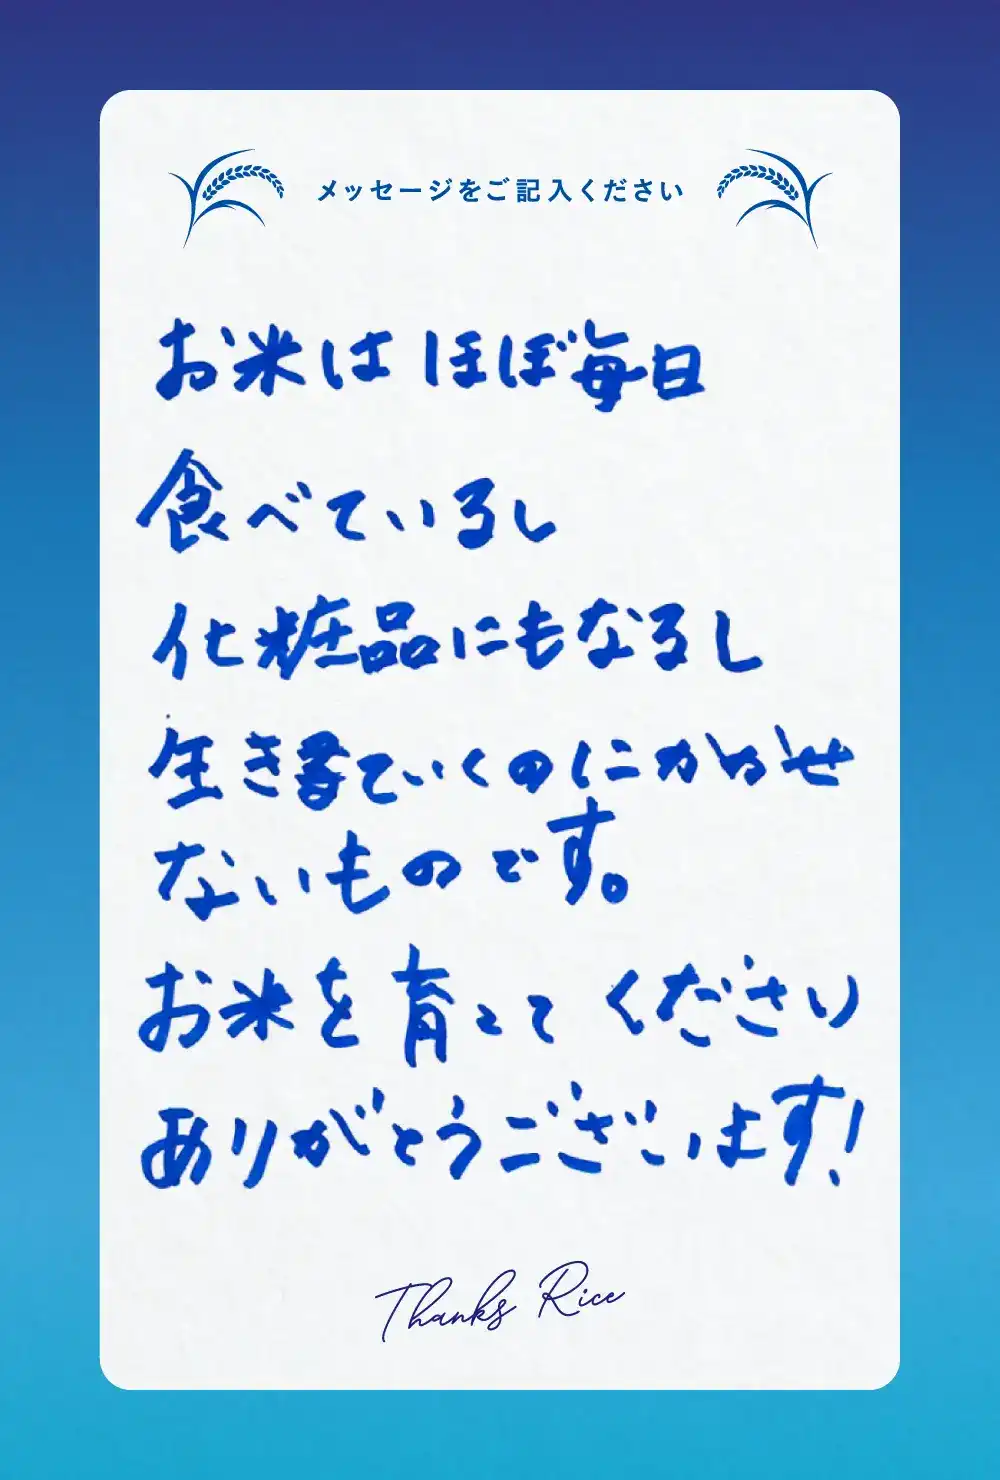 メッセージをご記入ください
お米は ほぼ毎日
食べているし
化粧品にもなるし
生き着ていくのにかかせ
ないものです。
お米を育ててください
ありがとうございます!
Thanks Rice